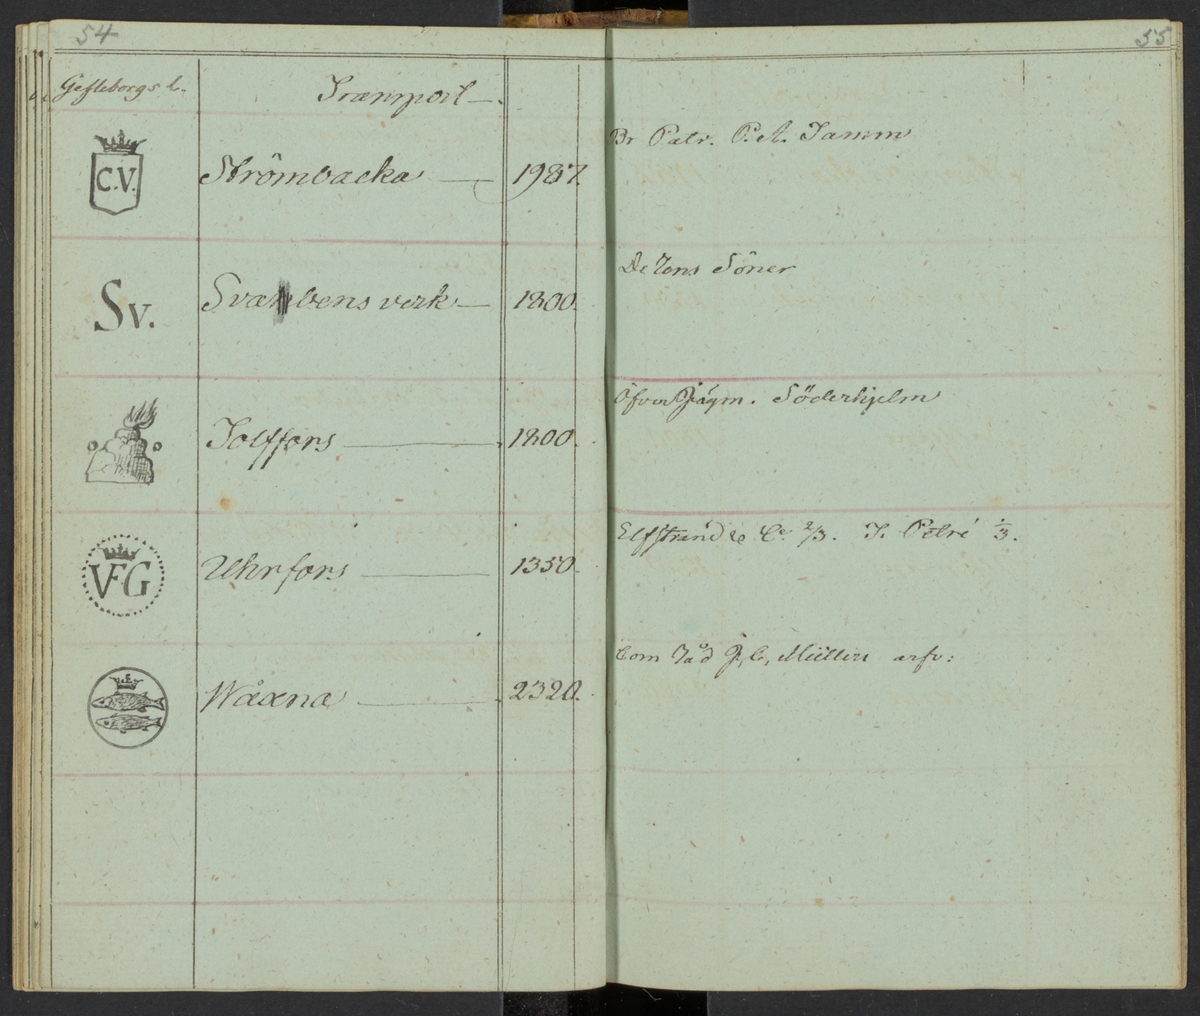 54
55
Gefleborgs L.
Transport
C.V.
Strömbacka 1987.
Br Patr. P. A. Tamm
Sv.
Svartvens verk 1800.
De Rons Söner
Tolffors 1800.
Öfver Jägm. Söderhjelm
VFG
Uhrfors 1350.
Elfstrand & Co. 2/3. I. Petré 1/3.
Wåxna 2320.
Com Råd P. C. Müllers arfv: